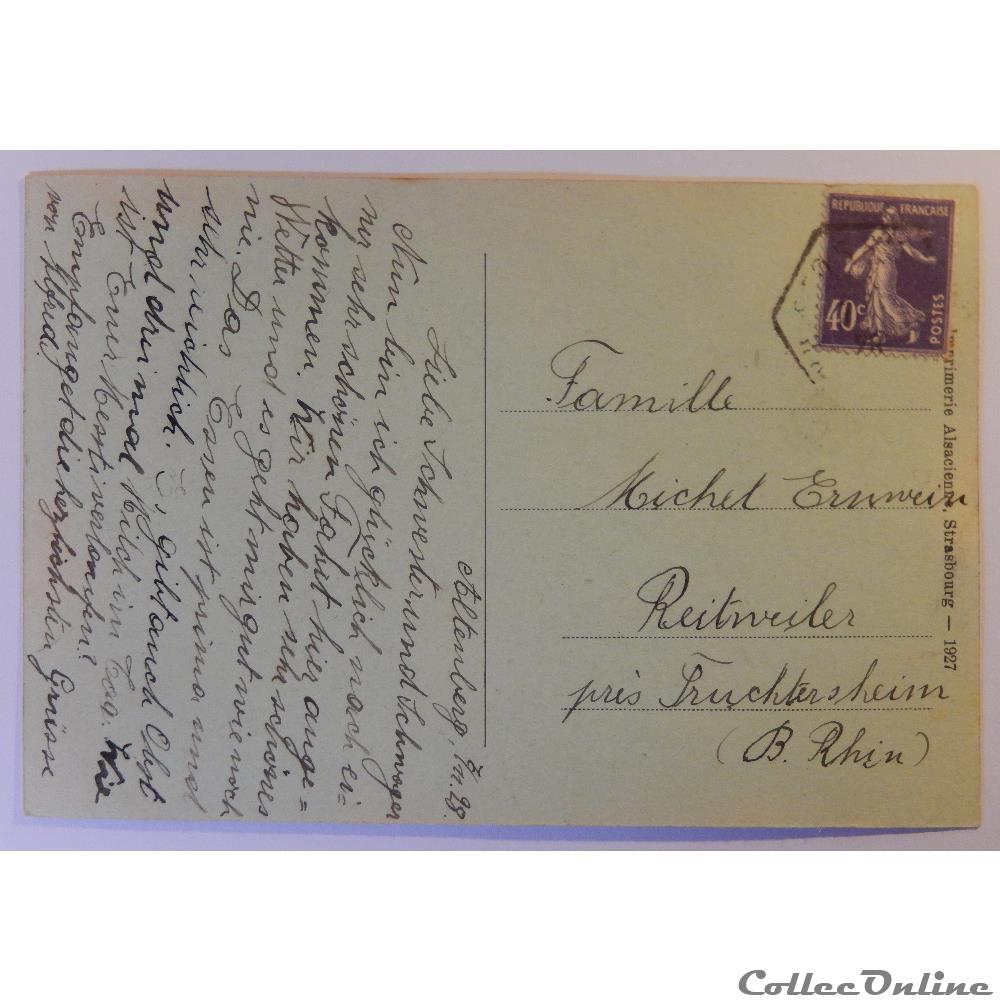 Altenberg, 28.
Liebe Schwester und Schwager
Nun bin ich glücklich nach ei=
ner sehr schönen Fahrt hier ange=
kommen. Wir haben sehr schönes
Wetter und es geht mir gut wie noch
nie. Das Essen ist prima und
sehr reichlich. Es gibt auch Obst
und dreimal Milch im Tag. Wie
ist Eure Mesti verlaufen?
Empfanget die herzlichsten Grüsse
von Alfred.
REPUBLIQUE FRANÇAISE
40c
POSTES
Famille
Michel Ernwein
Reitweiler
près Truchtersheim
(B. Rhin)
Imprimerie Alsacienne, Strasbourg — 1927
CollecOnline